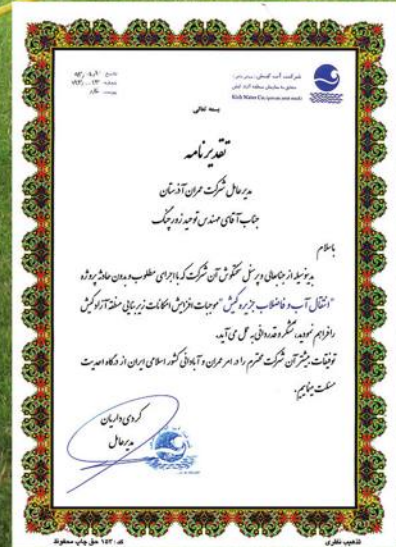 شرکت آب کیش (سهامی خاص)
متعلق به سازمان منطقه آزاد کیش
Kish Water Co.(private joint stock)
تاریخ
شماره
پیوست
بسمه تعالی
تقدیرنامه
مدیرعامل شرکت عمران آذرستان
جناب آقای مهندس توحید زورچنگ
باسلام
بدینوسیله از جنابعالی و پرسنل سختکوش آن شرکت که با اجرای مطلوب و بدون حادثه پروژه
"انتقال آب و فاضلاب جزیره کیش" موجبات افزایش امکانات زیربنایی منطقه آزاد کیش
را فراهم نمودید، تشکر و قدردانی به عمل می آید.
توفیقات بیشتر آن شرکت محترم را در امر عمران و آبادانی کشور اسلامی ایران از درگاه احدیت
مسئلت مینماییم.
کردی داریان
مدیرعامل
تذهیب نظری
کد: ۱۵۳ حق چاپ محفوظ